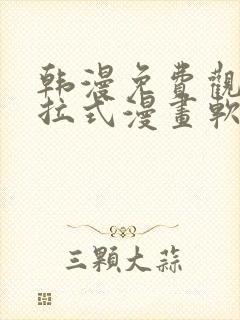 韩漫免費觀
拉式漫畫軟
三顆大蒜